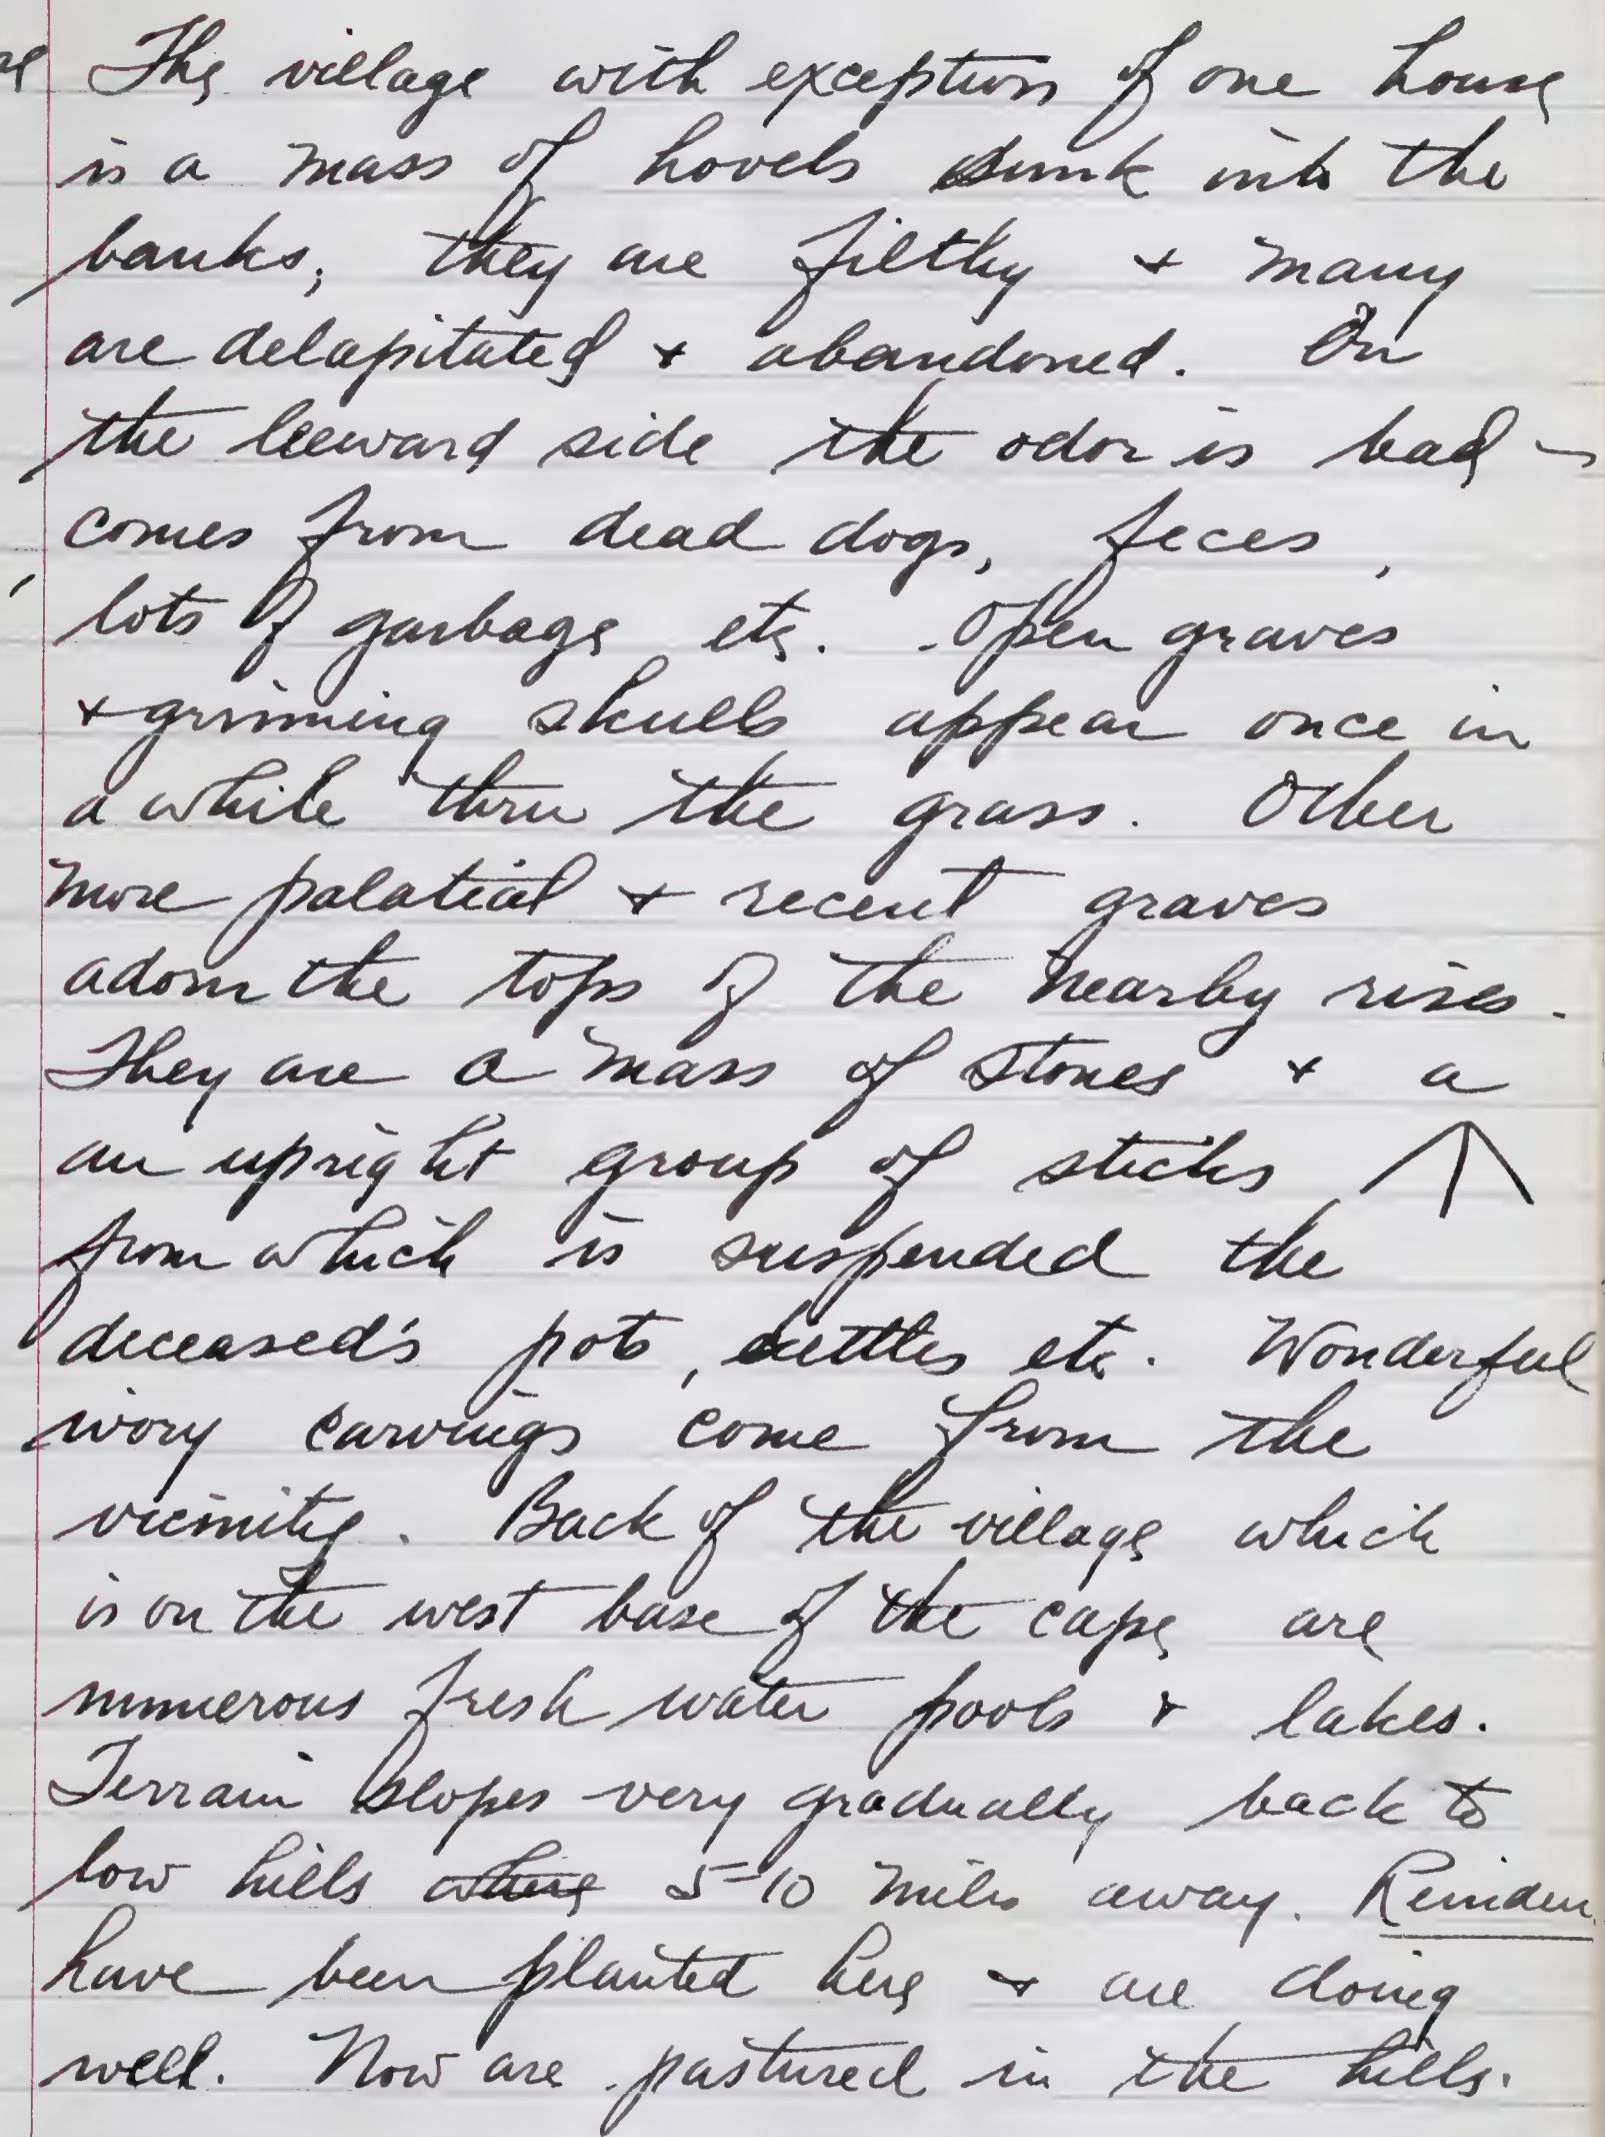 The village with exception of one house
is a mass of hovels sunk into the
banks, they are filthy + many
are delapitated + abandoned. On
the leeward side the odor is bad -
comes from dead dogs, feces,
lots of garbage etc. Open graves
+ grinning skulls appear once in
a while thru the grass. Other
more palatial + recent graves
adorn the tops of the nearby rises.
They are a mass of stones + a
an upright group of sticks
from which is suspended the
deceased's pots, kettles etc. Wonderful
ivory carvings come from the
vicinity. Back of the village which
is on the west base of the cape are
numerous fresh water pools + lakes.
Terrain slopes very gradually back to
low hills where 5-10 miles away. Reindeer
have been planted here + are doing
well. Now are pastured in the hills.